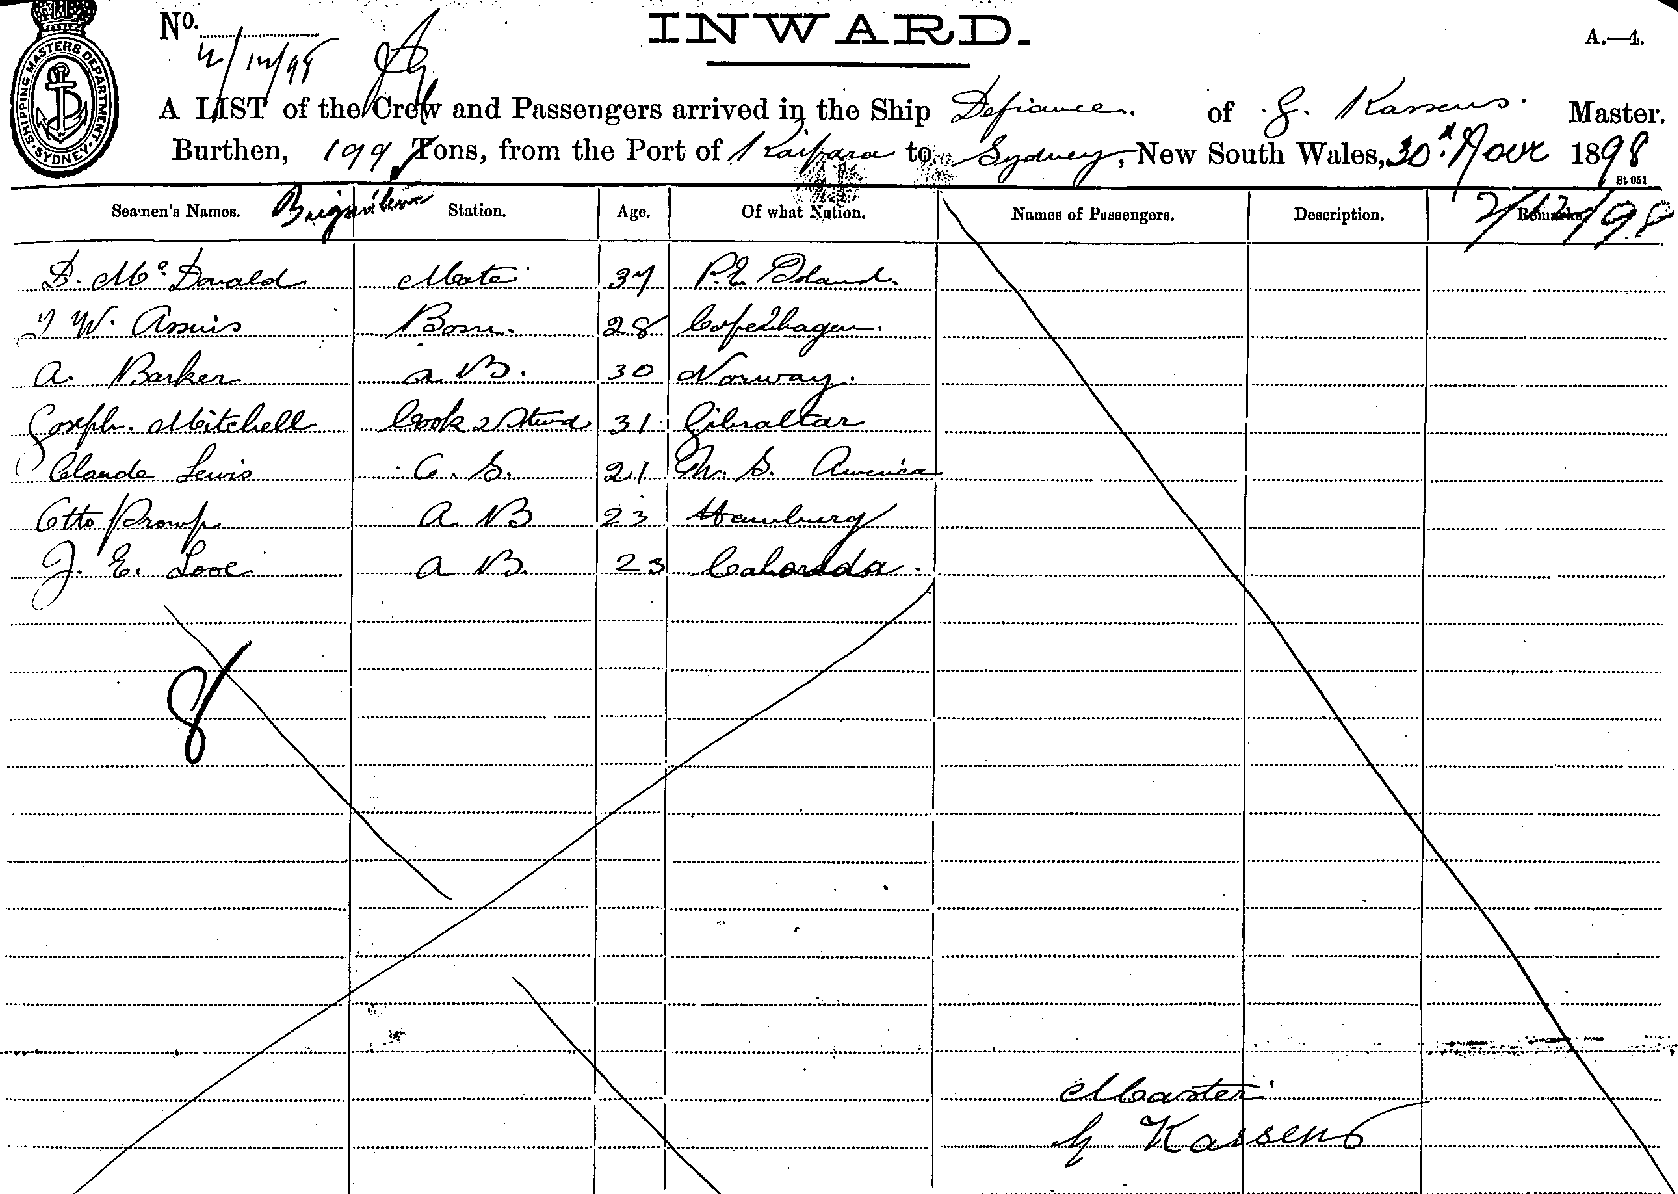 SHIPPING MASTERS DEPARTMENT SYDNEY
No.
INWARD.
A.—4.
2/12/98
A LIST of the Crew and Passengers arrived in the Ship Defiance. of G. Kassens. Master.
Burthen, 199 Tons, from the Port of Kaipara to Sydney, New South Wales, 30th Novr 1898
Seamen's Names. Station. Age. Of what Nation. Names of Passengers. Description. Remarks
2/12/98
D. McDonald Mate 37 P. E. Island.
W. Bosn. 28 Copenhagen.
A. Barker A. B. 30 Norway.
Joseph. Mitchell Cook & Stewd 31 Gibraltar
Claude Lewis O. S. 21 N. S. America
Otto A B 23 Hamburg
J. E. Love A B. 23
8
Master
G Kassens